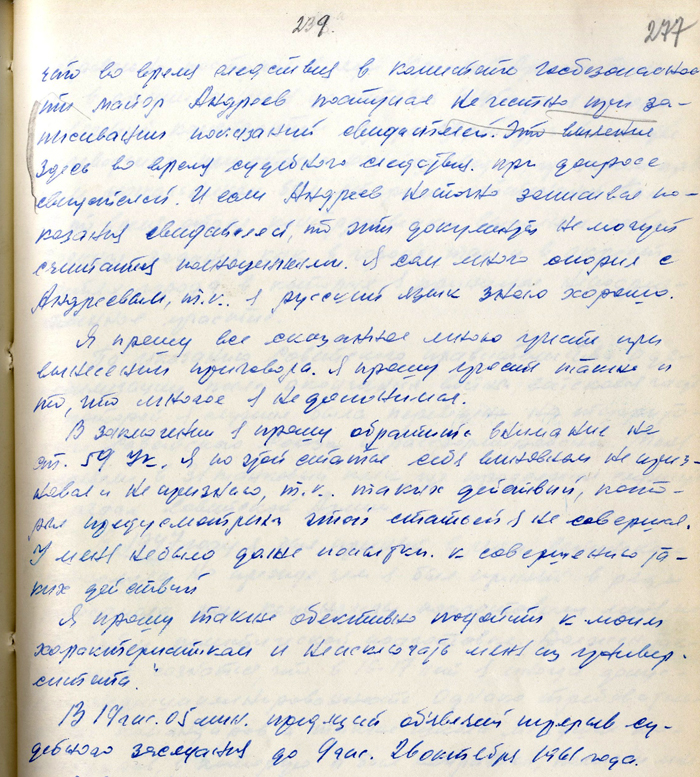 239
277
что во время следствия в комитете госбезопаснос-
ти майор Андреев поступал нечестно при за-
писывании показаний свидетелей. Это выявлено
здесь во время судебного следствия при допросе
свидетелей. И если Андреев неточно записывал по-
казания свидетелей, то эти документы не могут
считатся полноценными. Я сам много спорил с
Андреевым, т.к. я русский язык знаю хорошо.
Я прошу все сказанное мною учесть при
вынесении приговора. Я прошу учесть также и
то, что многое я недопонимал.
В заключении я прошу обратить внимание на
ст. 59 УК. Я по этой статье себя виновным не приз-
навал и не признаю, т.к. таких действий, кото-
рые предусмотрены этой статьей я не совершал.
У меня небыло даже попытки к совершению та-
ких действий
Я прошу также обективно подойти к моим
характеристикам и неисключать меня из универ-
ситета."
В 19 час. 05 мин. пред-щий объявлен перерыв су-
дебного заседания до 9 час. 28 октября 1961 года.